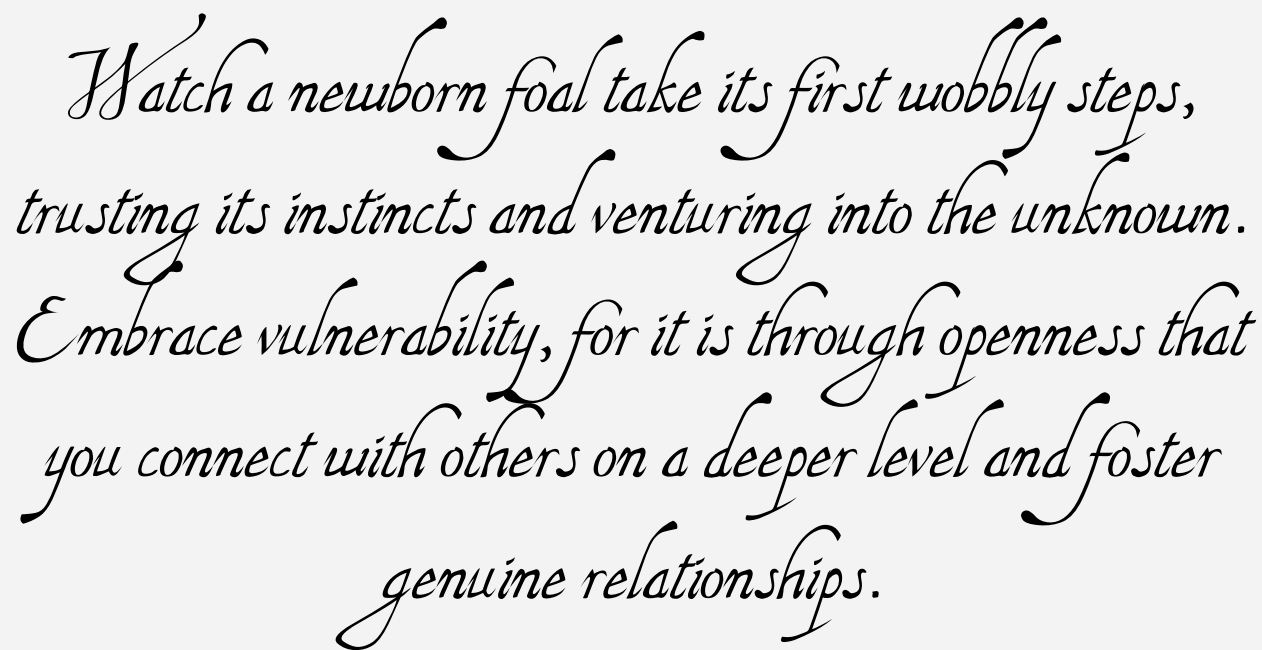 Watch a newborn foal take its first wobbly steps,
trusting its instincts and venturing into the unknown.
Embrace vulnerability, for it is through openness that
you connect with others on a deeper level and foster
genuine relationships.